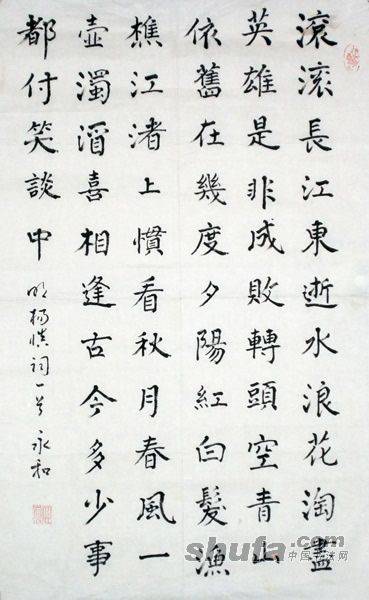 滚滚長江東逝水浪花淘盡
英雄是非成敗轉頭空青山
依舊在幾度夕陽紅白髮漁
樵江渚上慣看秋月春風一
壺濁酒喜相逢古今多少事
都付笑談中
明楊慎詞一首 永和
shufa.com
中国书法网